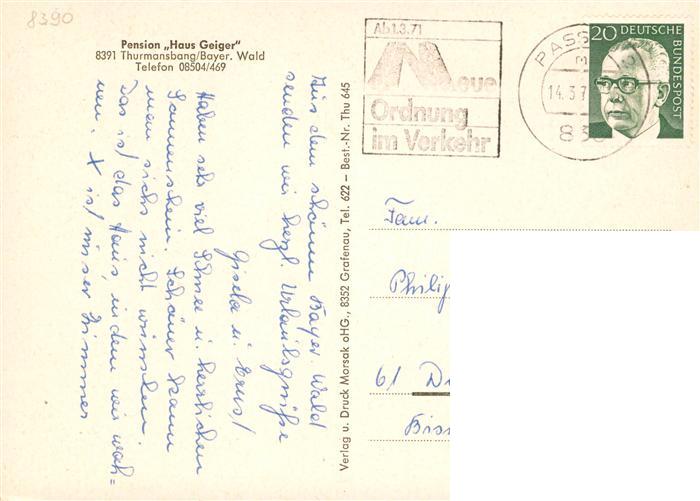 8390
Pension „Haus Geiger"
8391 Thurmansbang/Bayer. Wald
Telefon 08504/469
Aus dem schönen Bayer. Wald
senden wir herzl. Urlaubsgrüße
Gisela u. Ernst
Haben sehr viel Schnee u. herrlichen
Sonnenschein. Schöner kann
man sichs nicht wünschen.
Das ist das Haus, in dem wir woh=
nen. X ist unser Zimmer.
Verlag u. Druck Morsak oHG., 8352 Grafenau, Tel. 622 – Best.-Nr. Thu 645
Ab 1.3.71
Neue
Ordnung
im Verkehr
PASS
14.3.7
839
20 DEUTSCHE
BUNDESPOST
Fam.
Philip
61 D
Biss